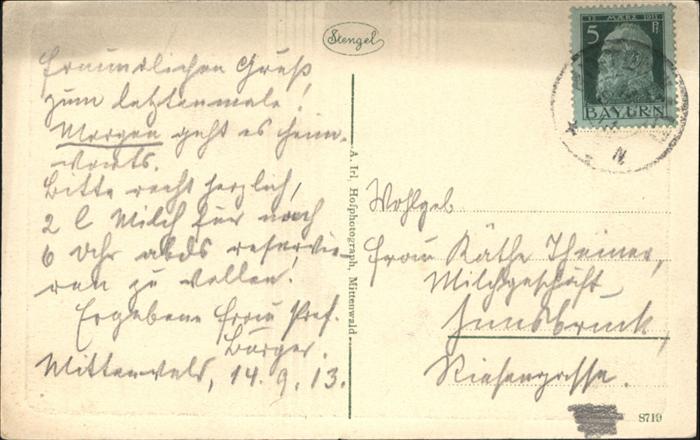 Stengel
12. MÄRZ 1911
5 Pf
BAYERN
Freundlichen Gruß
zum letztenmale!
Morgen geht es heim-
wärts.
Bitte recht herzlich,
2 l Milch für nach
6 Uhr abds reservie-
ren zu wollen.
Ergebene Frau Prof.
Burger.
Mittenwald, 14. 9. 13.
A. Irl, Hofphotograph, Mittenwald
Wohlgeb
Frau Käthe Theiner,
Milchgeschäft
Innsbruck,
Riesengasse.
8719